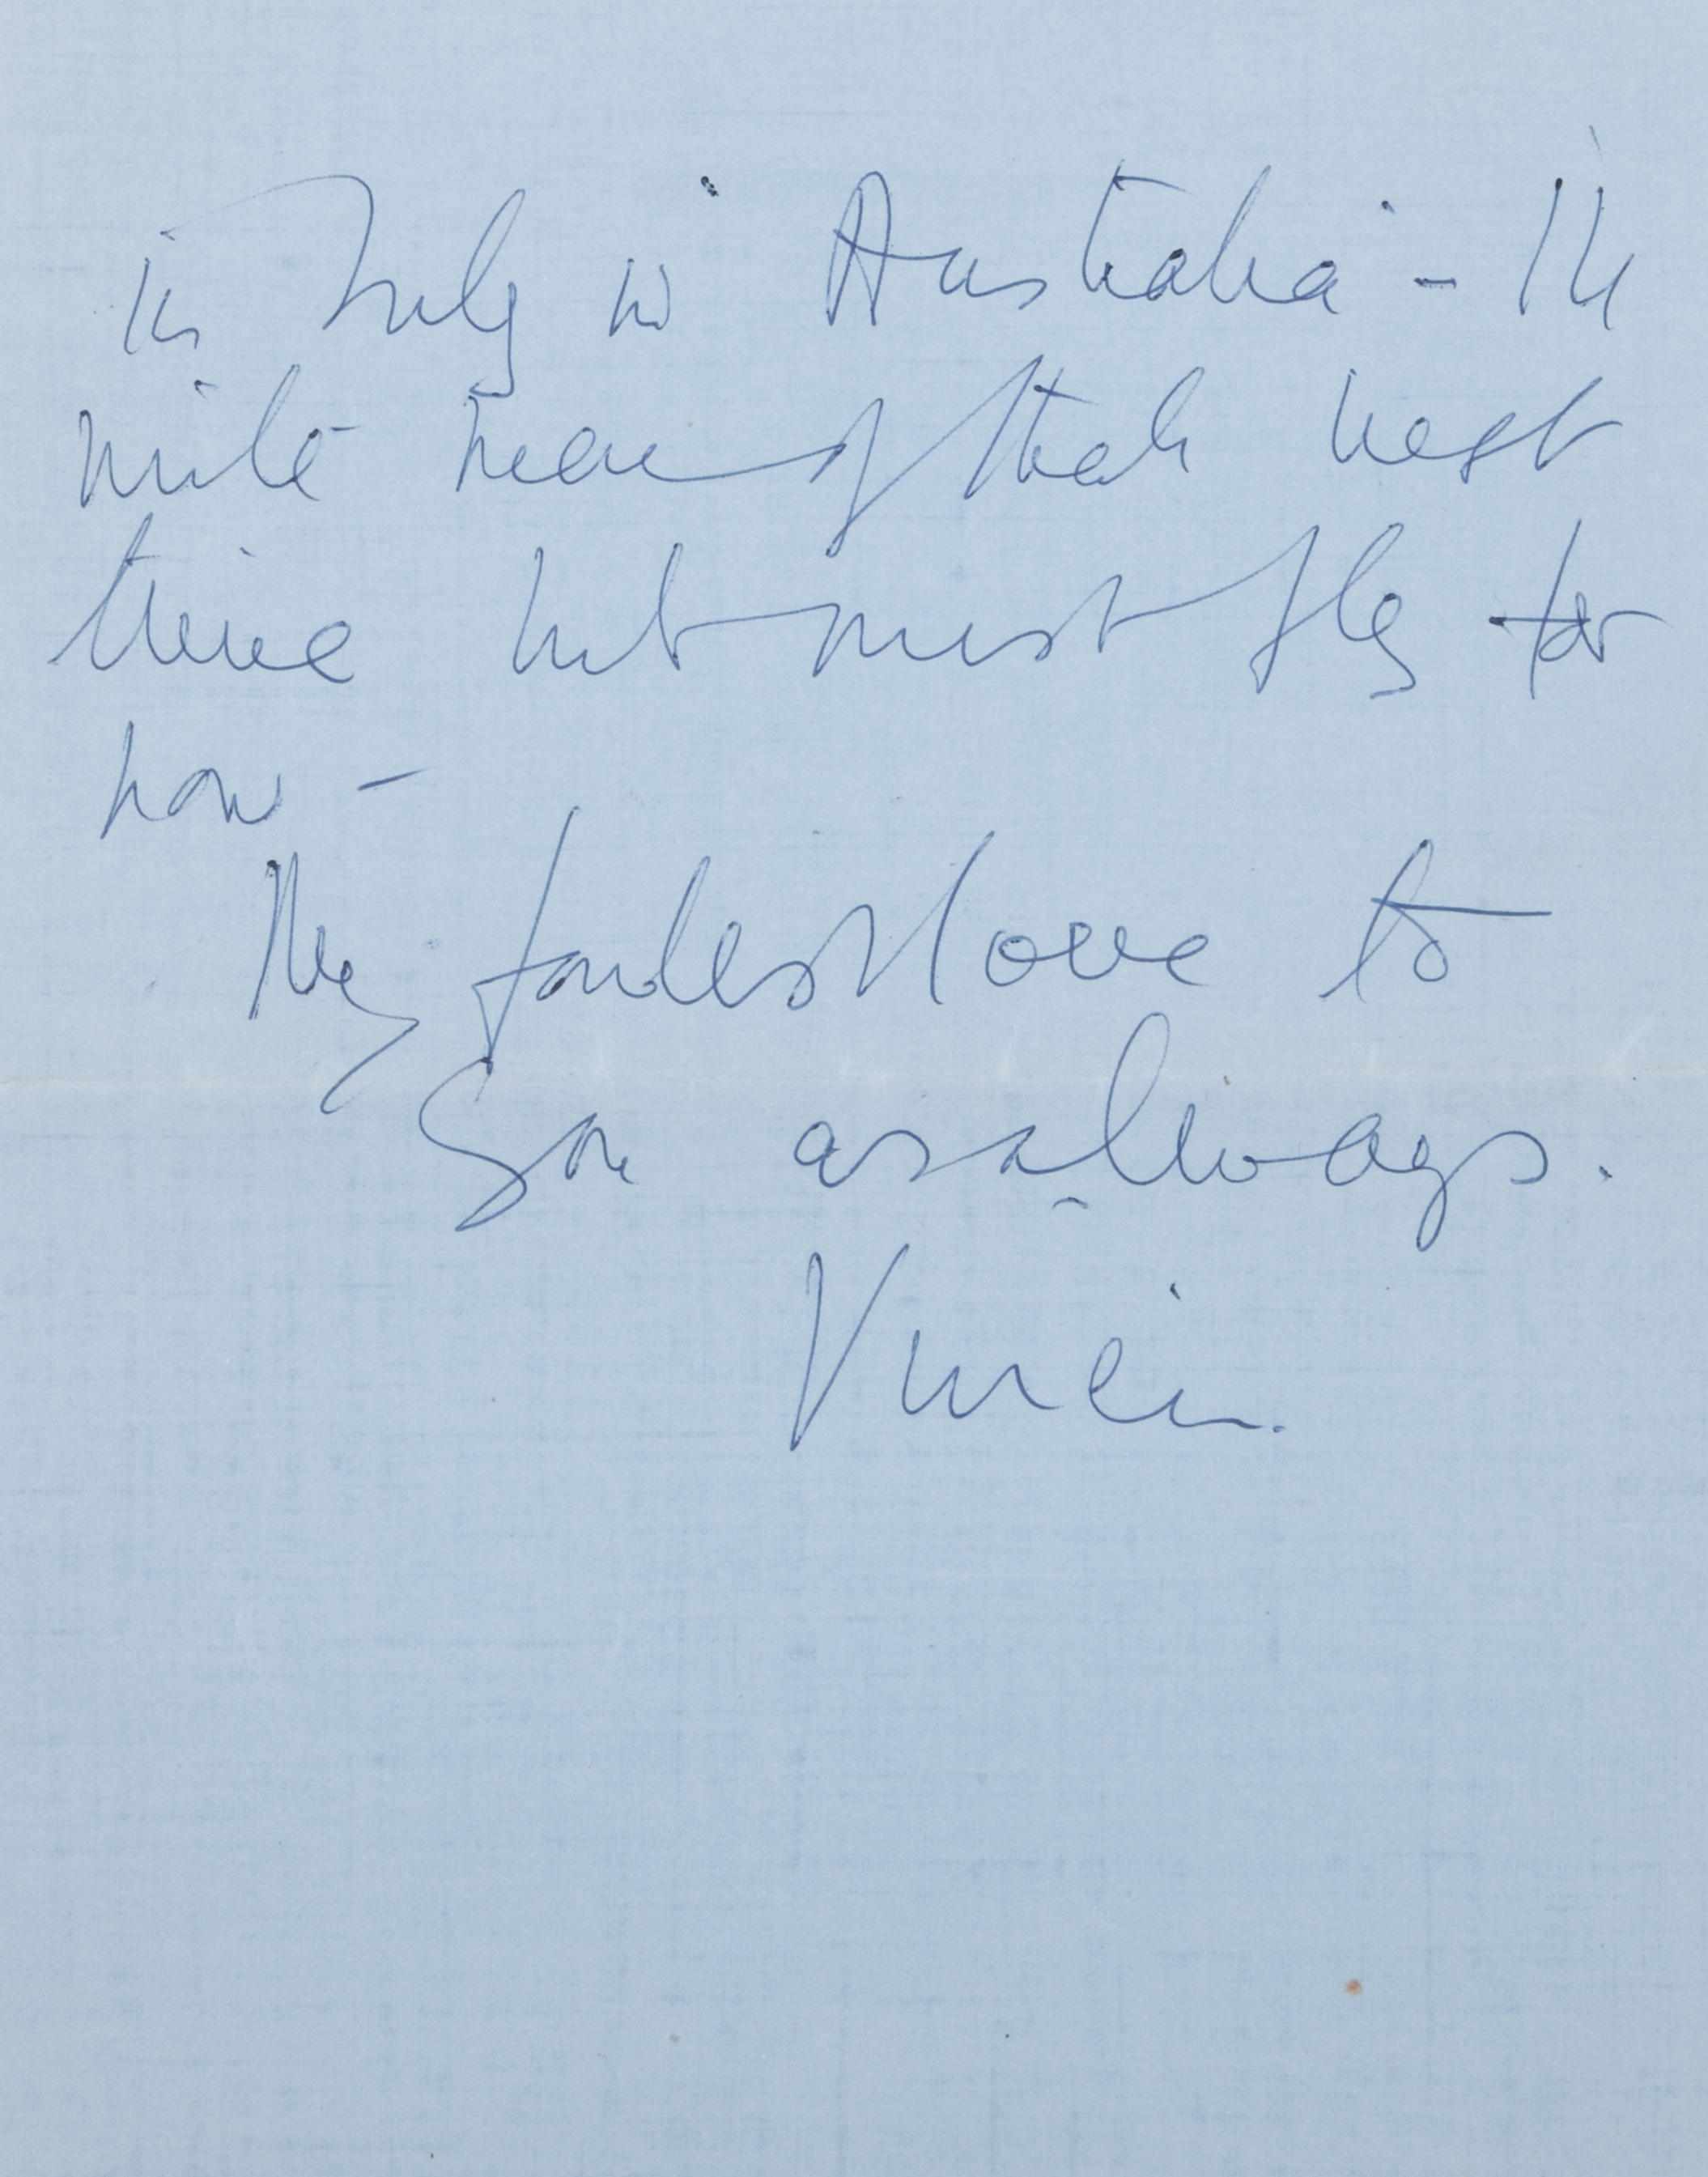 in July in Australia - I'll
write more of that next
time but must fly for
now -
My fondest love to
you as always.
Vivien.